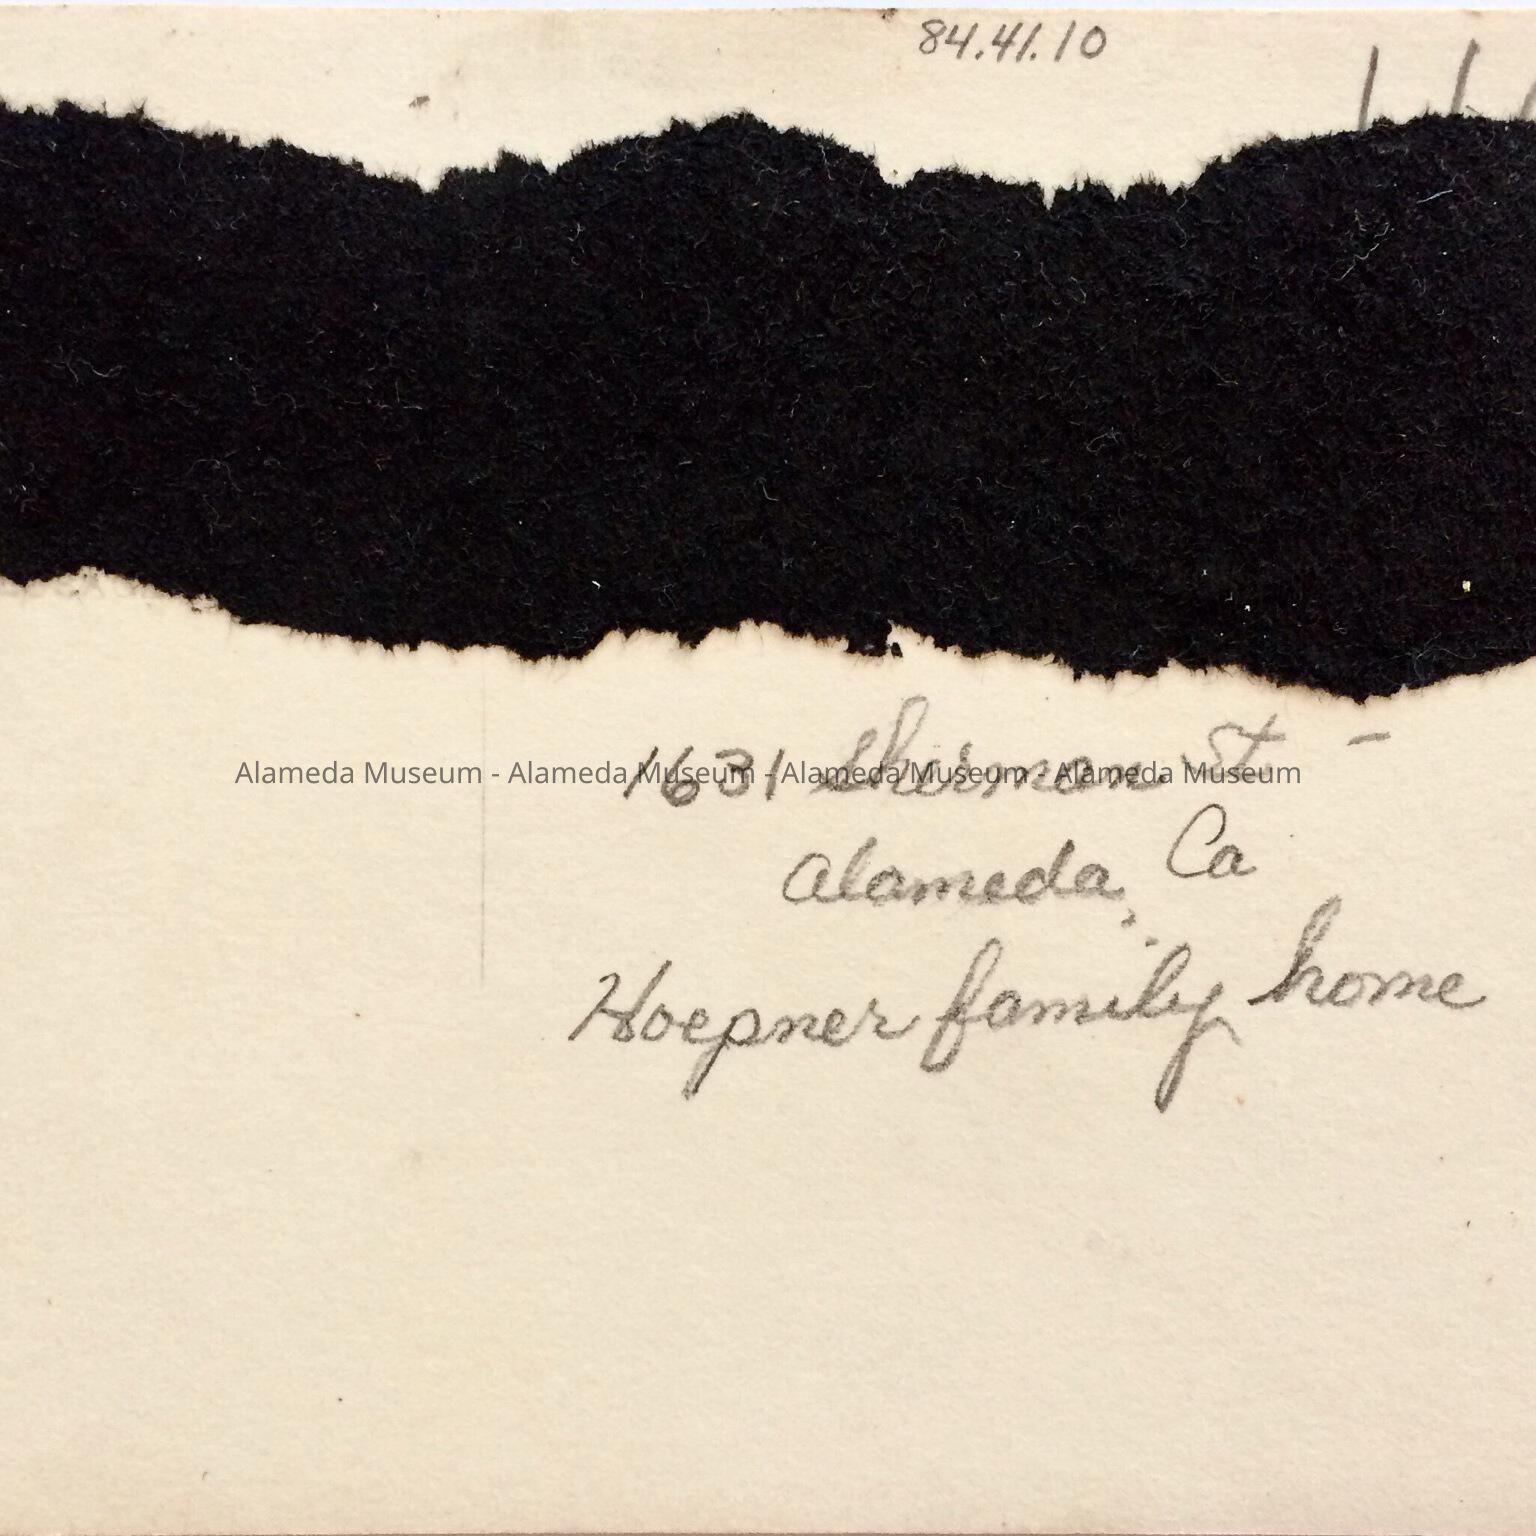 84.41.10
1631 Sherman St. -
Alameda Museum - Alameda Museum - Alameda Museum - Alameda Museum
Alameda, Ca
Hoepner family home